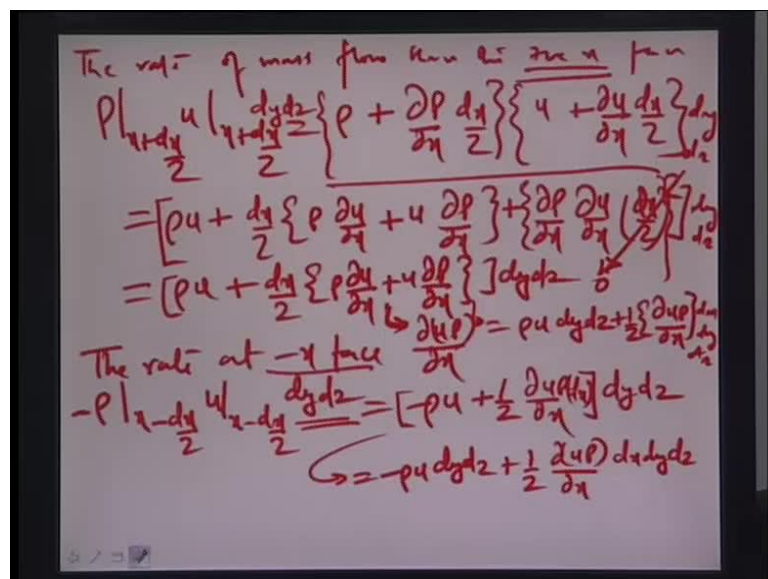 The rate of mass flow thru the +ve x face
ρ|_{x+dx/2} u|_{x+dx/2} dydz {ρ + ∂ρ/∂x dx/2}{u + ∂u/∂x dx/2} dy dz
= [ρu + dx/2 {ρ ∂u/∂x + u ∂ρ/∂x} + {∂ρ/∂x ∂u/∂x (dx/2)}] dy dz
= [ρu + dx/2 {ρ ∂u/∂x + u ∂ρ/∂x}] dydz 0
↳ ∂(uρ)/∂x = ρu dydz + 1/2 {∂uρ/∂x} dx dy dz
The rate at -x face
-ρ|_{x-dx/2} u|_{x-dx/2} dydz = [-ρu + 1/2 ∂uρ/∂x (dx)] dydz
↳ = -ρu dydz + 1/2 ∂(uρ)/∂x dxdydz